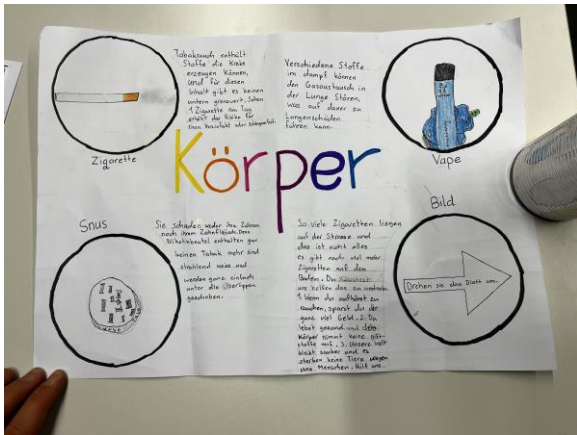 Tabakrauch enthält
Stoffe die Krebs
erzeugen können,
und für diesen
Inhalt gibt es keinen
untern grenzwert. Schon
1 Zigarette am Tag
erhöt das Risiko für
einen herzinfakt oder
Zigarette
Verschiedene Stoffe
im dampf können
den Gasaustausch in
der Lunge Stören,
was auf dauer zu
Lungenschäden
führen kann.
Vape
Körper
Snus
Sie schaden weder ihre Zähnen
noch ihrem Zahnfleisch. Denn
Nikotinbeutel enthalten gar
keinen Tabak mehr sind
strahlend weiss und
werden ganz einfach
unter die Oberlippen
geschoben.
So viele Zigaretten liegen
auf der Strasse und
das ist nicht alles
es gibt noch viel mehr
Zigretten auf den
Boden. Du
uns helfen das zu
1. Wenn du aufhörst zu
rauchen, sparst du dir
ganz viel Geld. 2. Du
lebst gesund und dein
körper nimmt keine gift
stoffe auf. 3. Unsere luft
bleibt sauber und es
sterben keine Tiere wegen
uns Menschen. Hilf uns.
Bild
Drehen sie das Blatt um.